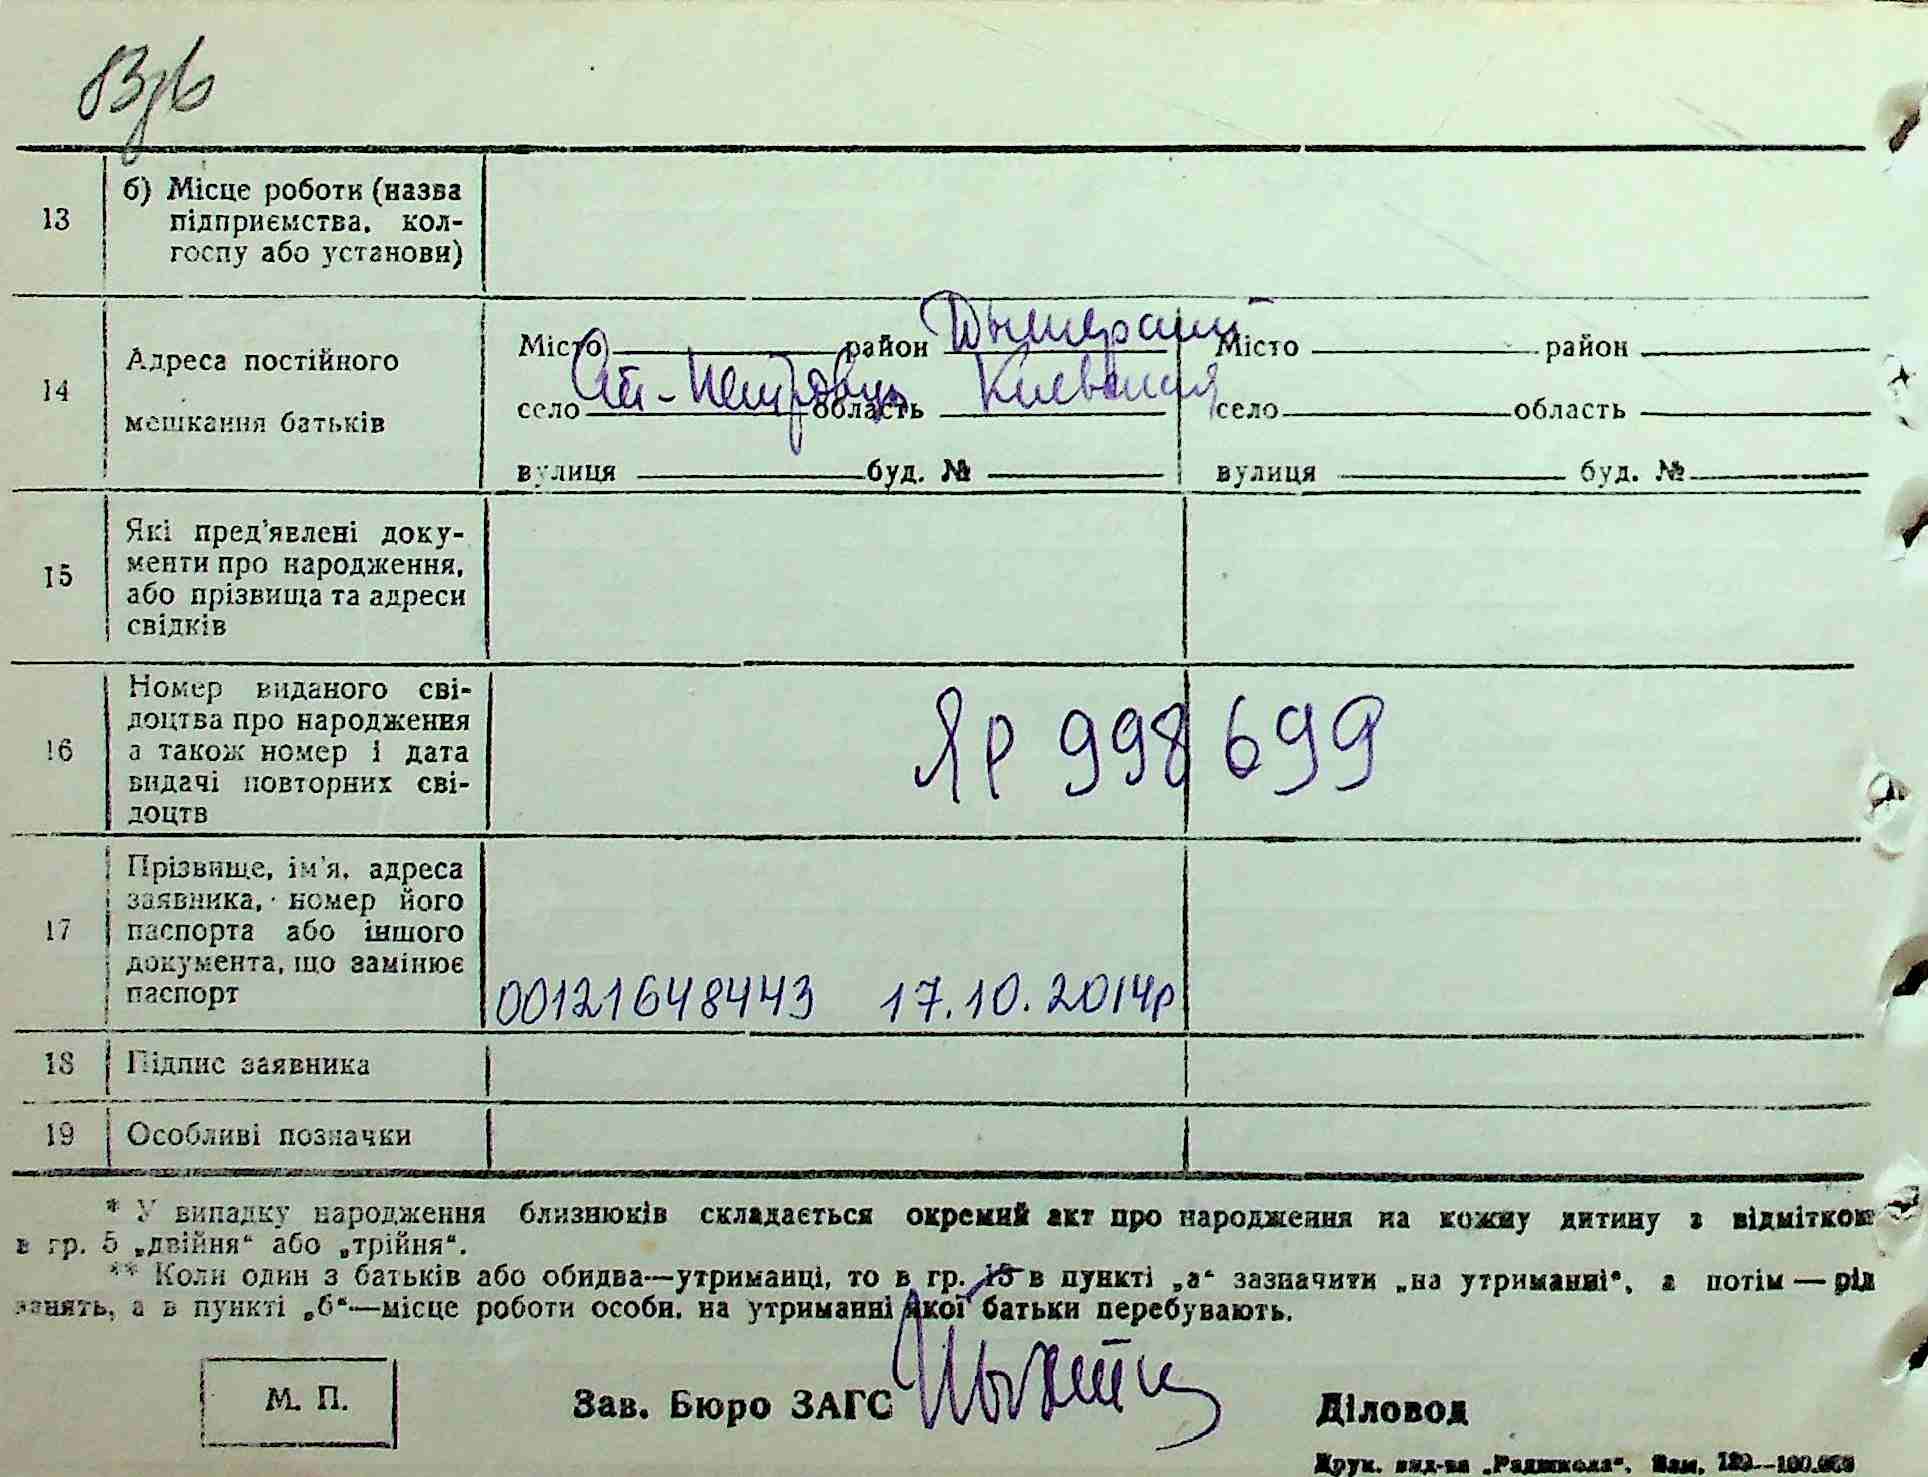 13 б) Місце роботи (назва
підприємства, кол-
госпу або установи)
14 Адреса постійного
мешкання батьків
Місто район Дымерский
село Ст-Петровцы область Киевская
вулиця буд. №
Місто район
село область
вулиця буд. №
15 Які пред'явлені доку-
менти про народження,
або прізвища та адреси
свідків
16 Номер виданого сві-
доцтва про народження
а також номер і дата
видачі повторних сві-
доцтв
ЯР 998699
17 Прізвище, ім'я, адреса
заявника, номер його
паспорта або іншого
документа, що замінює
паспорт
00121648443 17.10.2014р
18 Підпис заявника
19 Особливі позначки
* У випадку народження близнюків складається окремий акт про народження на кожну дитину з відміткою
в гр. 5 „двійня“ або „трійня“.
** Коли один з батьків або обидва—утриманці, то в гр. 13 в пункті „а“ зазначити „на утриманні“, а потім — рід
занять, а в пункті „б“—місце роботи особи, на утриманні якої батьки перебувають.
М. П. Зав. Бюро ЗАГС Діловод
Друк. вид-ва „Радшкола“. Зам.